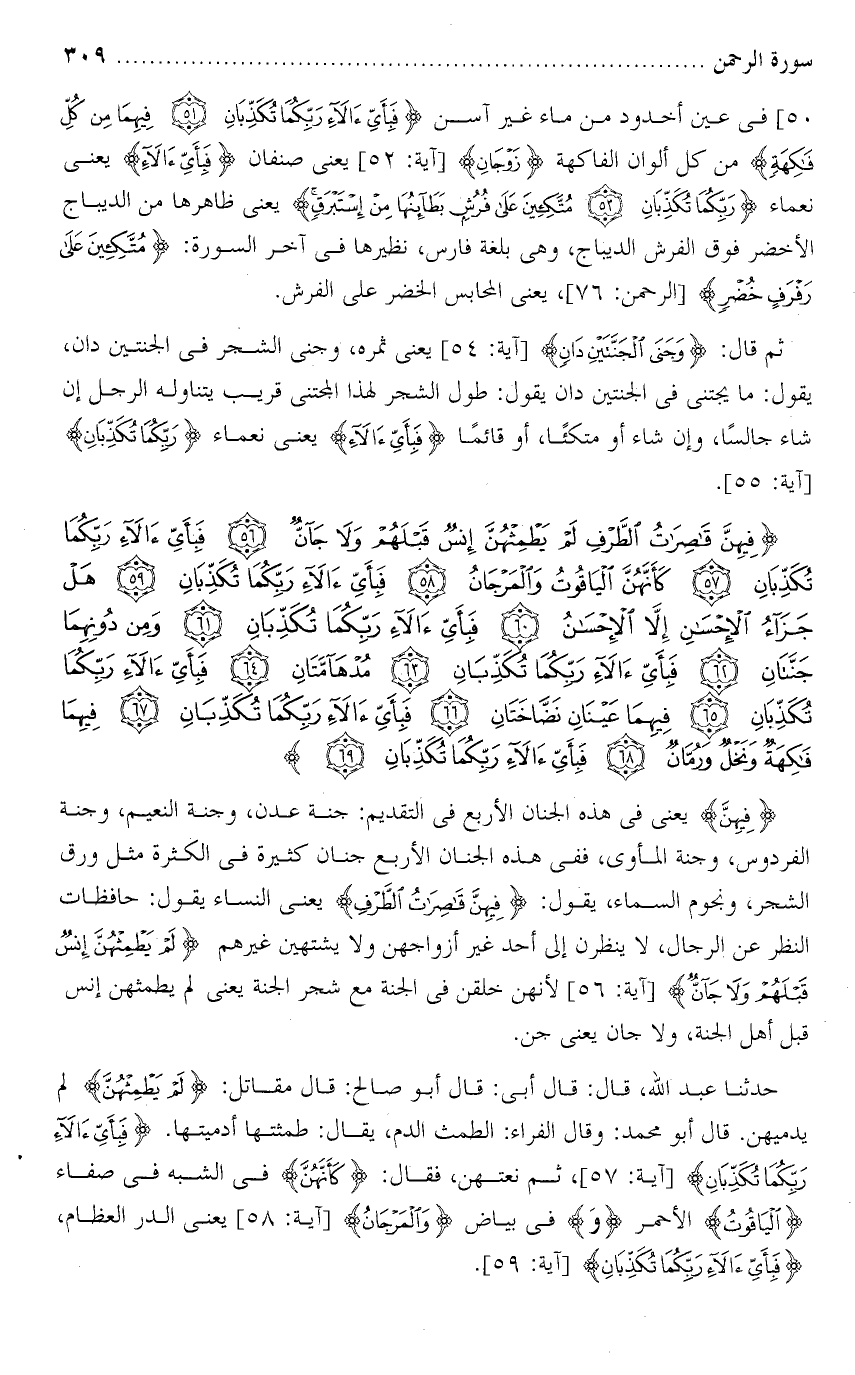 سورة الرحمن ........................................................................ ٣٠٩
٥٠] فى عين أخدود من ماء غير آسن ﴿ فَبِأَيِّ ءَالَآءِ رَبِّكُمَا تُكَذِّبَانِ ۝٥١ فِيهِمَا مِن كُلِّ
فَٰكِهَةٍ﴾ من كل ألوان الفاكهة ﴿ زَوْجَانِ﴾ [آية: ٥٢] يعنى صنفان ﴿ فَبِأَيِّ ءَالَآءِ﴾ يعنى
نعماء ﴿ رَبِّكُمَا تُكَذِّبَانِ ۝٥٣ مُتَّكِـِٔينَ عَلَىٰ فُرُشٍۭ بَطَآئِنُهَا مِنْ إِسْتَبْرَقٍۚ﴾ يعنى ظاهرها من الديباج
الأخضر فوق الفرش الديباج، وهى بلغة فارس، نظيرها فى آخر السورة: ﴿ مُتَّكِـِٔينَ عَلَىٰ
رَفْرَفٍ خُضْرٍ﴾ [الرحمن: ٧٦]، يعنى المحابس الخضر على الفرش.
ثم قال: ﴿ وَجَنَى ٱلْجَنَّتَيْنِ دَانٍ﴾ [آية: ٥٤] يعنى ثمره، وجنى الشجر فى الجنتين دان،
يقول: ما يجتنى فى الجنتين دان يقول: طول الشجر لهذا المجتنى قريب يتناوله الرجل إن
شاء جالسًا، وإن شاء أو متكئًا، أو قائمًا ﴿ فَبِأَيِّ ءَالَآءِ﴾ يعنى نعماء ﴿ رَبِّكُمَا تُكَذِّبَانِ﴾
[آية: ٥٥].
﴿ فِيهِنَّ قَٰصِرَٰتُ ٱلطَّرْفِ لَمْ يَطْمِثْهُنَّ إِنسٌ قَبْلَهُمْ وَلَا جَآنٌّ ۝٥٦ فَبِأَيِّ ءَالَآءِ رَبِّكُمَا
تُكَذِّبَانِ ۝٥٧ كَأَنَّهُنَّ ٱلْيَاقُوتُ وَٱلْمَرْجَانُ ۝٥٨ فَبِأَيِّ ءَالَآءِ رَبِّكُمَا تُكَذِّبَانِ ۝٥٩ هَلْ
جَزَآءُ ٱلْإِحْسَٰنِ إِلَّا ٱلْإِحْسَٰنُ ۝٦٠ فَبِأَيِّ ءَالَآءِ رَبِّكُمَا تُكَذِّبَانِ ۝٦١ وَمِن دُونِهِمَا
جَنَّتَانِ ۝٦٢ فَبِأَيِّ ءَالَآءِ رَبِّكُمَا تُكَذِّبَانِ ۝٦٣ مُدْهَآمَّتَانِ ۝٦٤ فَبِأَيِّ ءَالَآءِ رَبِّكُمَا
تُكَذِّبَانِ ۝٦٥ فِيهِمَا عَيْنَانِ نَضَّاخَتَانِ ۝٦٦ فَبِأَيِّ ءَالَآءِ رَبِّكُمَا تُكَذِّبَانِ ۝٦٧ فِيهِمَا
فَٰكِهَةٌ وَنَخْلٌ وَرُمَّانٌ ۝٦٨ فَبِأَيِّ ءَالَآءِ رَبِّكُمَا تُكَذِّبَانِ ۝٦٩ ﴾
﴿ فِيهِنَّ﴾ يعنى فى هذه الجنان الأربع فى التقديم: جنة عدن، وجنة النعيم، وجنة
الفردوس، وجنة المأوى، ففى هذه الجنان الأربع جنان كثيرة فى الكثرة مثل ورق
الشجر، ونجوم السماء، يقول: ﴿ فِيهِنَّ قَٰصِرَٰتُ ٱلطَّرْفِ﴾ يعنى النساء يقول: حافظات
النظر عن الرجال، لا ينظرن إلى أحد غير أزواجهن ولا يشتهين غيرهم ﴿ لَمْ يَطْمِثْهُنَّ إِنسٌ
قَبْلَهُمْ وَلَا جَآنٌّ﴾ [آية: ٥٦] لأنهن خلقن فى الجنة مع شجر الجنة يعنى لم يطمثهن إنس
قبل أهل الجنة، ولا جان يعنى جن.
حدثنا عبد الله، قال: قال أبى: قال أبو صالح: قال مقاتل: ﴿ لَمْ يَطْمِثْهُنَّ﴾ لم
يدميهن. قال أبو محمد: وقال الفراء: الطمث الدم، يقال: طمثتها أدميتها. ﴿ فَبِأَيِّ ءَالَآءِ
رَبِّكُمَا تُكَذِّبَانِ﴾ [آية: ٥٧]، ثم نعتهن، فقال: ﴿ كَأَنَّهُنَّ﴾ فى الشبه فى صفاء
﴿ ٱلْيَاقُوتُ﴾ الأحمر ﴿وَ﴾ فى بياض ﴿ وَٱلْمَرْجَانُ﴾ [آية: ٥٨] يعنى الدر العظام،
﴿ فَبِأَيِّ ءَالَآءِ رَبِّكُمَا تُكَذِّبَانِ﴾ [آية: ٥٩].